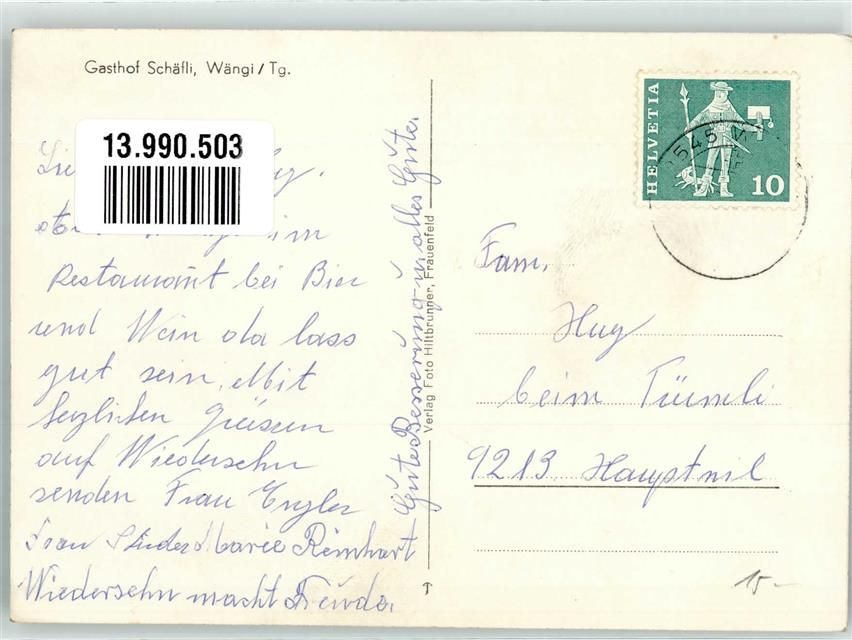 Gasthof Schäfli, Wängi / Tg.
13.990.503
im
Restaurant bei Bier
und Wein da lass
gut sein. Mit
herzlichen Grüssen
auf Wiedersehn
senden Frau Engler
Frau Studer Marie Reinhart
Wiedersehn macht Freude.
Gute Besserung u. alles Gute.
Verlag Foto Hiltbrunner, Frauenfeld
HELVETIA
10
9545
Fam.
Hug
beim Türmli
9213 Hauptwil
15.-